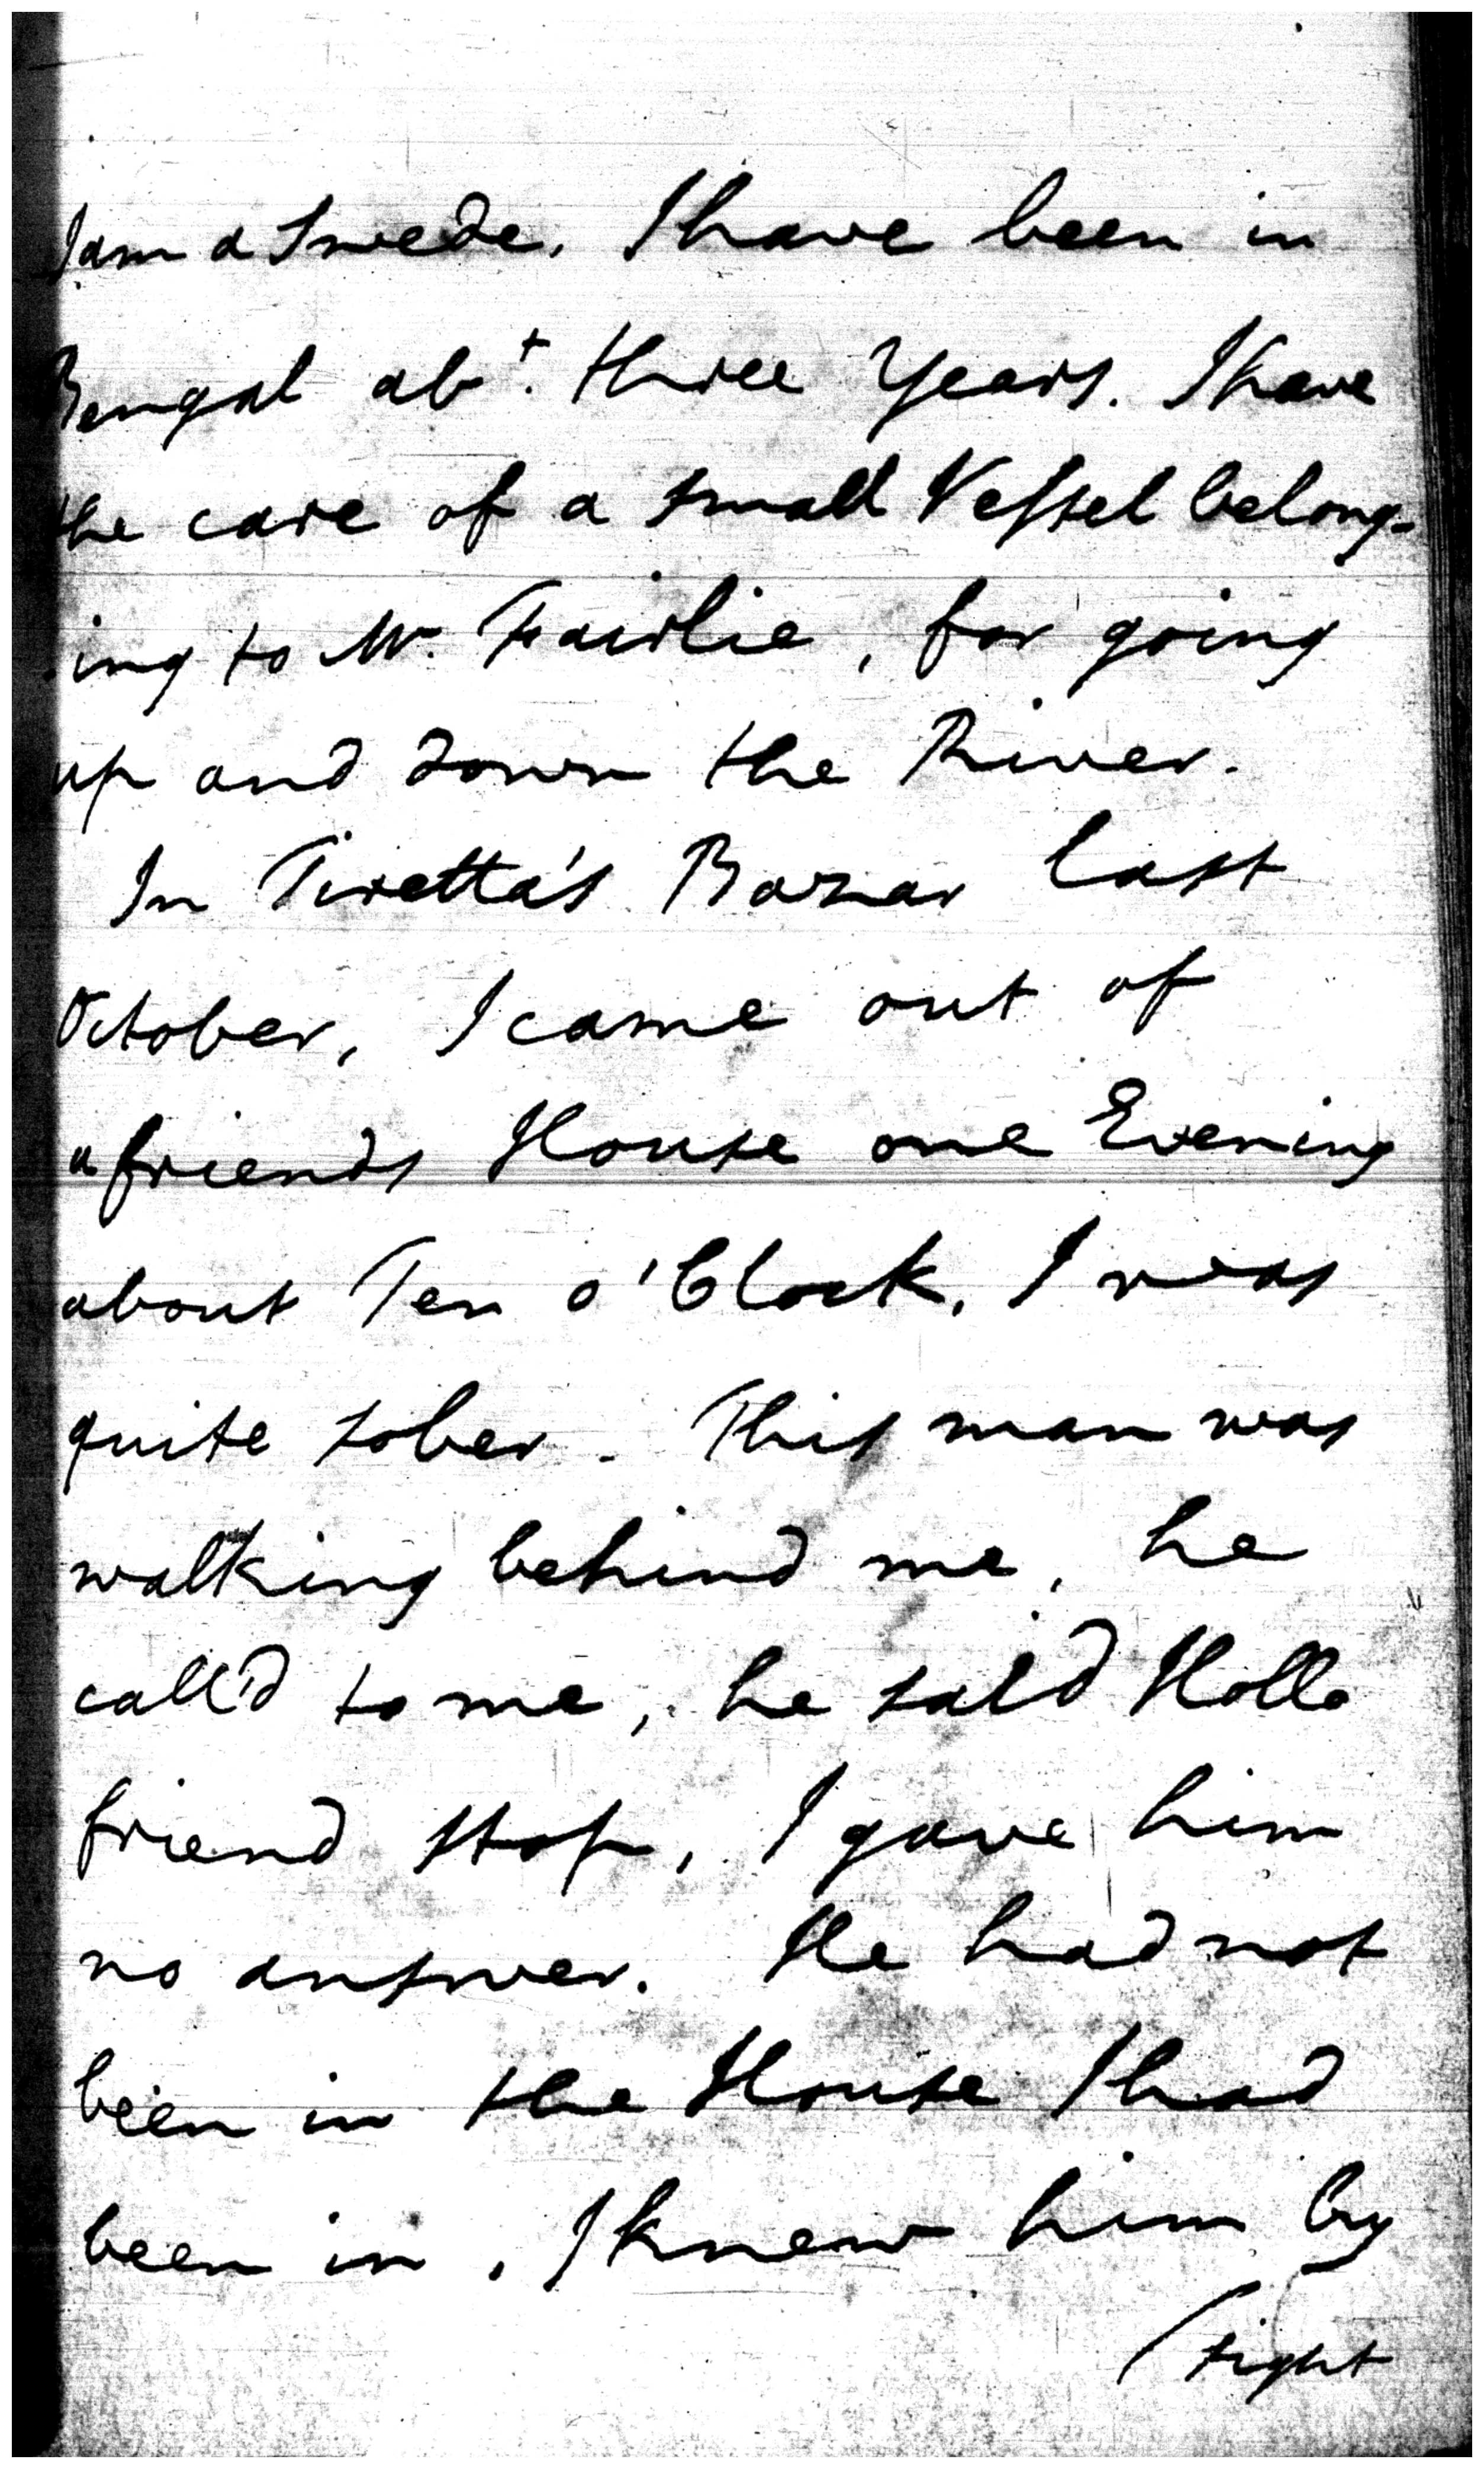 I am a Swede. I have been in
Bengal abt. three Years. I have
the care of a small Vessel belong-
ing to Mr. Fairlie, for going
up and down the River.
In Tiretta's Bazar last
October, I came out of
a friends House one Evening
about Ten o'Clock. I was
quite sober. This man was
walking behind me, he
call'd to me, he said Hollo
friend stop, I gave him
no answer. He had not
been in the House I had
been in, I knew him by
(sight